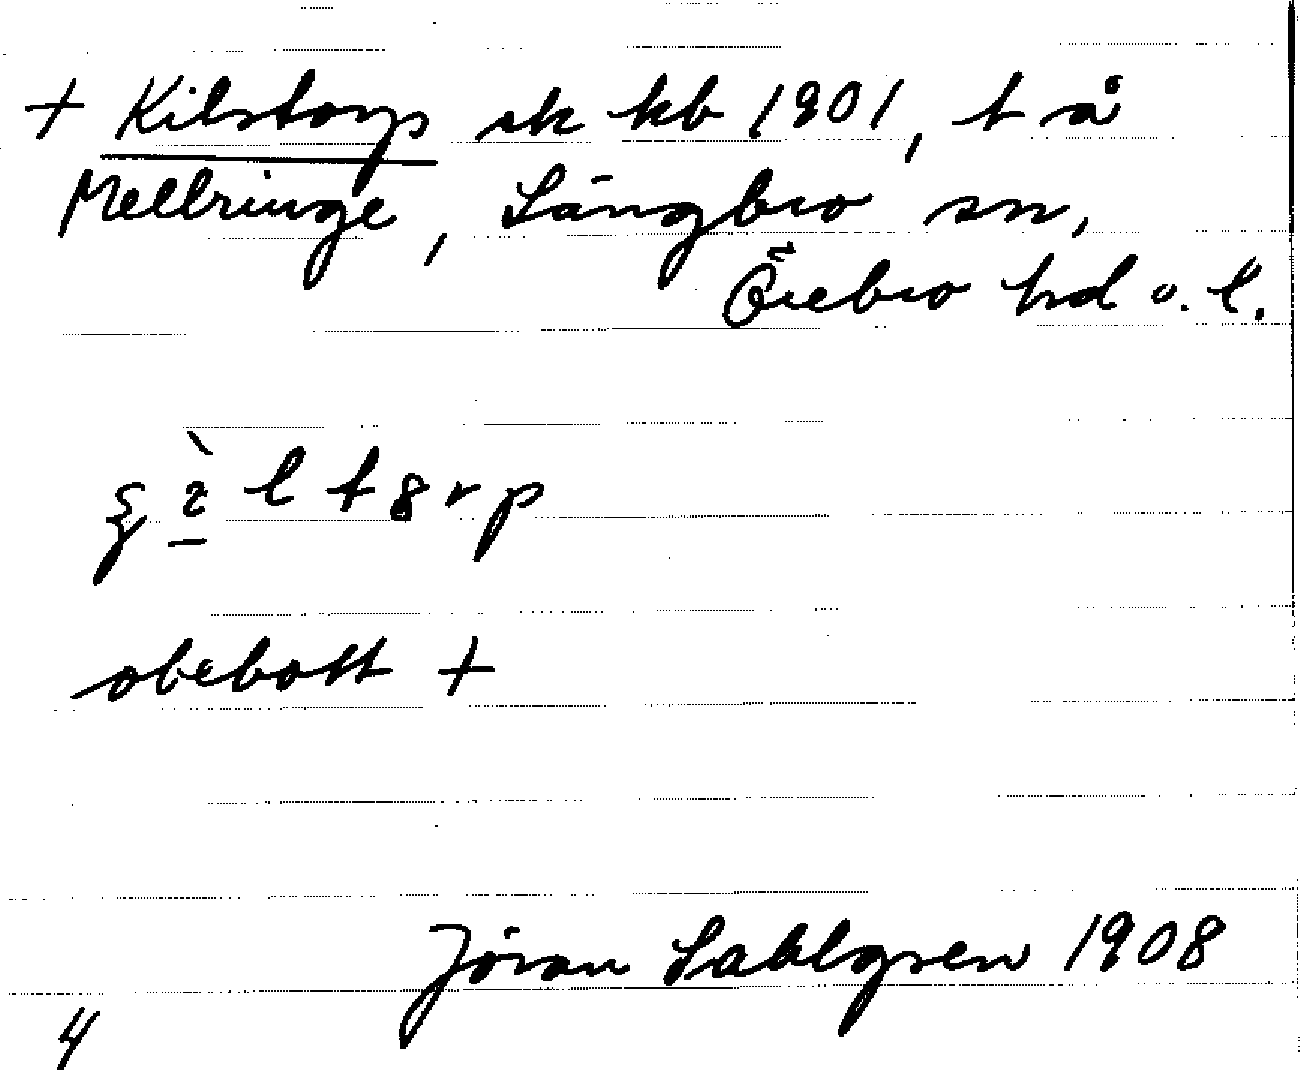 + Kilstorp sk kb 1901, t å
Mellringe, Längbro sn,
Örebro hd o. l.
obebott +
Jöran Sahlgren 1908
4